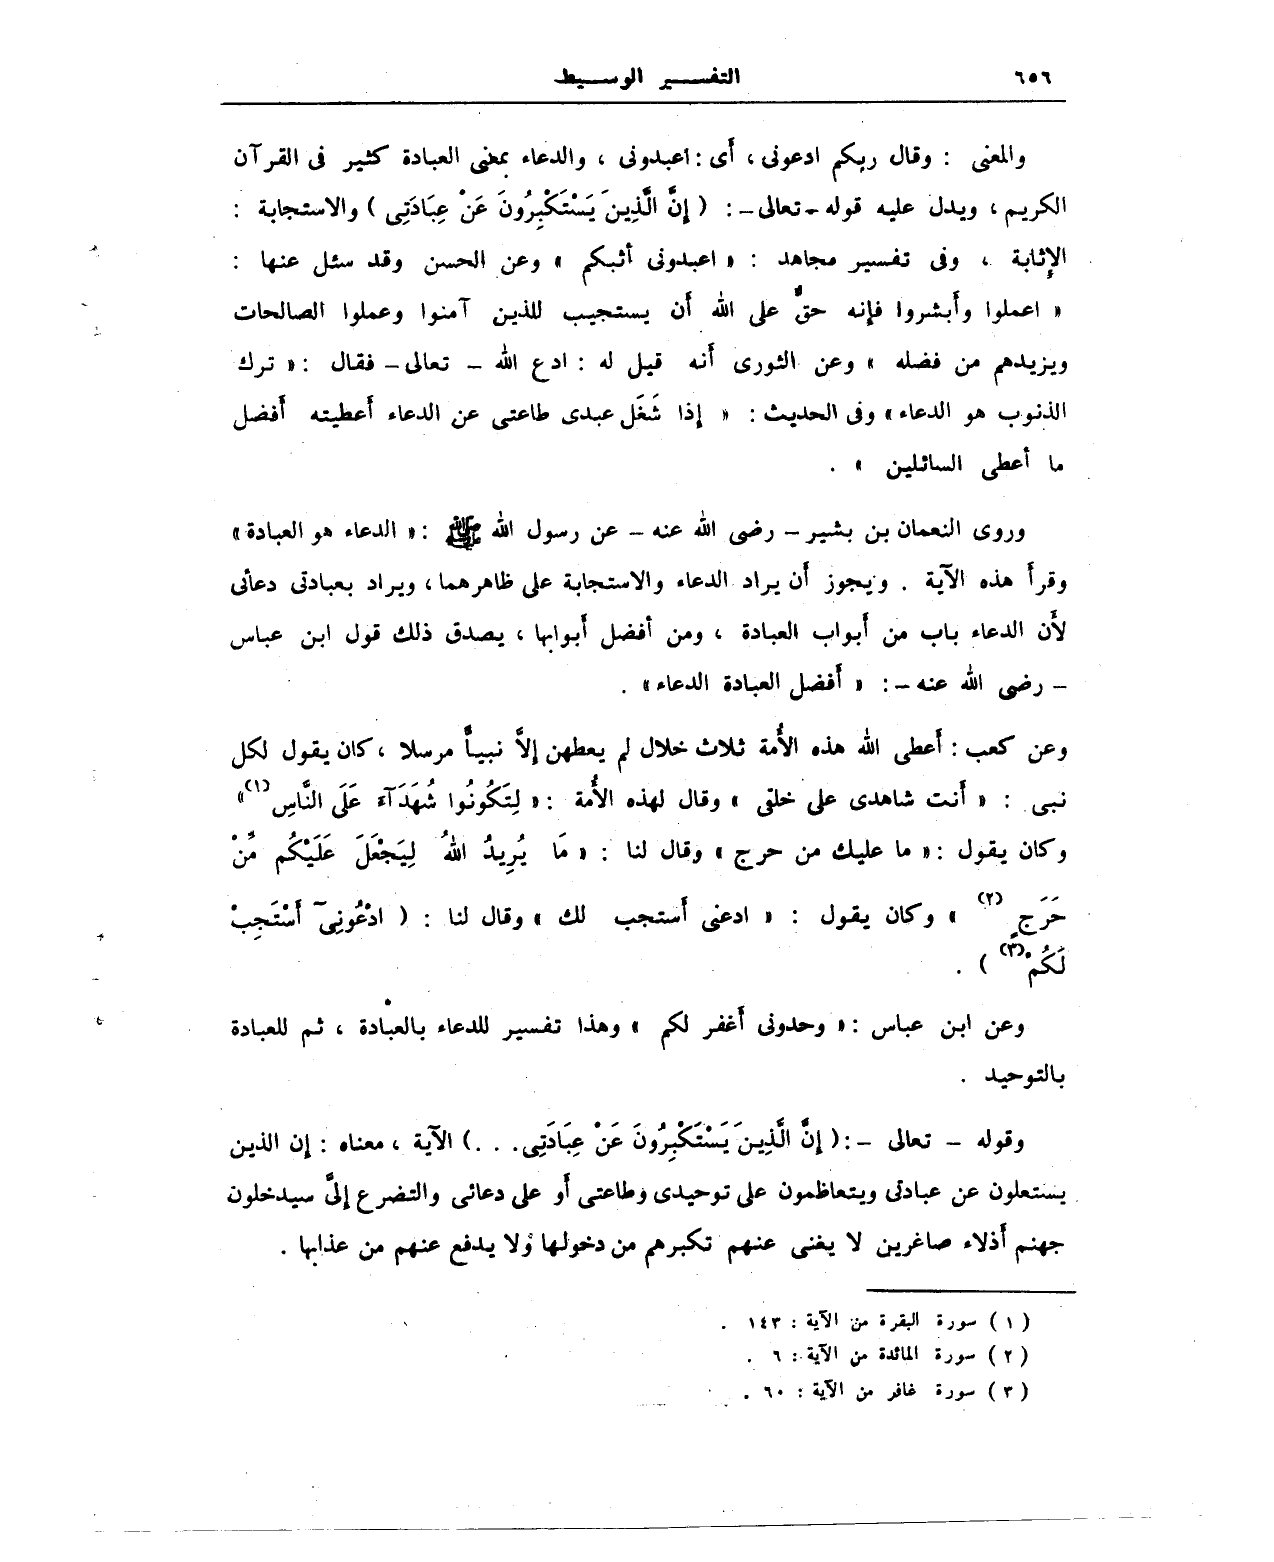 ٦٥٦
التفسير الوسيط
والمعنى : وقال ربكم ادعونى ، أَى : اعبدونى ، والدعاء بمعنى العبادة كثير فى القرآن
الكريم ، ويدل عليه قوله – تعالى – : ( إِنَّ الَّذِينَ يَسْتَكْبِرُونَ عَنْ عِبَادَتِى ) والاستجابة :
الإِثابة ، وفى تفسير مجاهد : « اعبدونى أثبكم » وعن الحسن وقد سئل عنها :
« اعملوا وأَبشروا فإنه حقٌّ على الله أَن يستجيب للذين آمنوا وعملوا الصالحات
ويزيدهم من فضله » وعن الثورى أَنه قيل له : ادع الله – تعالى – فقال : « ترك
الذنوب هو الدعاء » وفى الحديث : « إذا شَغَل عبدى طاعتى عن الدعاء أَعطيته أَفضل
ما أَعطى السائلين » .
وروى النعمان بن بشير – رضى الله عنه – عن رسول الله ﷺ : « الدعاء هو العبادة »
وقرأَ هذه الآية . ويجوز أَن يراد الدعاء والاستجابة على ظاهرهما ، ويراد بعبادتى دعائى
لأَن الدعاء باب من أَبواب العبادة ، ومن أفضل أَبوابها ، يصدق ذلك قول ابن عباس
– رضى الله عنه – : « أَفضل العبادة الدعاء » .
وعن كعب : أَعطى الله هذه الأُمة ثلاث خلال لم يعطهن إلاَّ نبيًّا مرسلا ، كان يقول لكل
نبى : « أَنت شاهدى على خلقى » وقال لهذه الأُمة : « لِتَكُونُوا شُهَدَآءَ عَلَى النَّاسِ (١) »
وكان يقول : « ما عليك من حرج » وقال لنا : « مَا يُرِيدُ اللهُ لِيَجْعَلَ عَلَيْكُم مِّنْ
حَرَجٍ (٢) » وكان يقول : « ادعنى أَستجب لك » وقال لنا : ( ادْعُونِىٓ أَسْتَجِبْ
لَكُمْ (٣) ) .
وعن ابن عباس : « وحدونى أَغفر لكم » وهذا تفسير للدعاء بالعبادة ، ثم للعبادة
بالتوحيد .
وقوله – تعالى – : ( إِنَّ الَّذِينَ يَسْتَكْبِرُونَ عَنْ عِبَادَتِى . . . ) الآية ، معناه : إن الذين
يستعلون عن عبادتى ويتعاظمون على توحيدى وطاعتى أَو على دعائى والتضرع إلىَّ سيدخلون
جهنم أَذلاء صاغرين لا يغنى عنهم تكبرهم من دخولها ولا يدفع عنهم من عذابها .
( ١ ) سورة البقرة من الآية : ١٤٣ .
( ٢ ) سورة المائدة من الآية : ٦ .
( ٣ ) سورة غافر من الآية : ٦٠ .